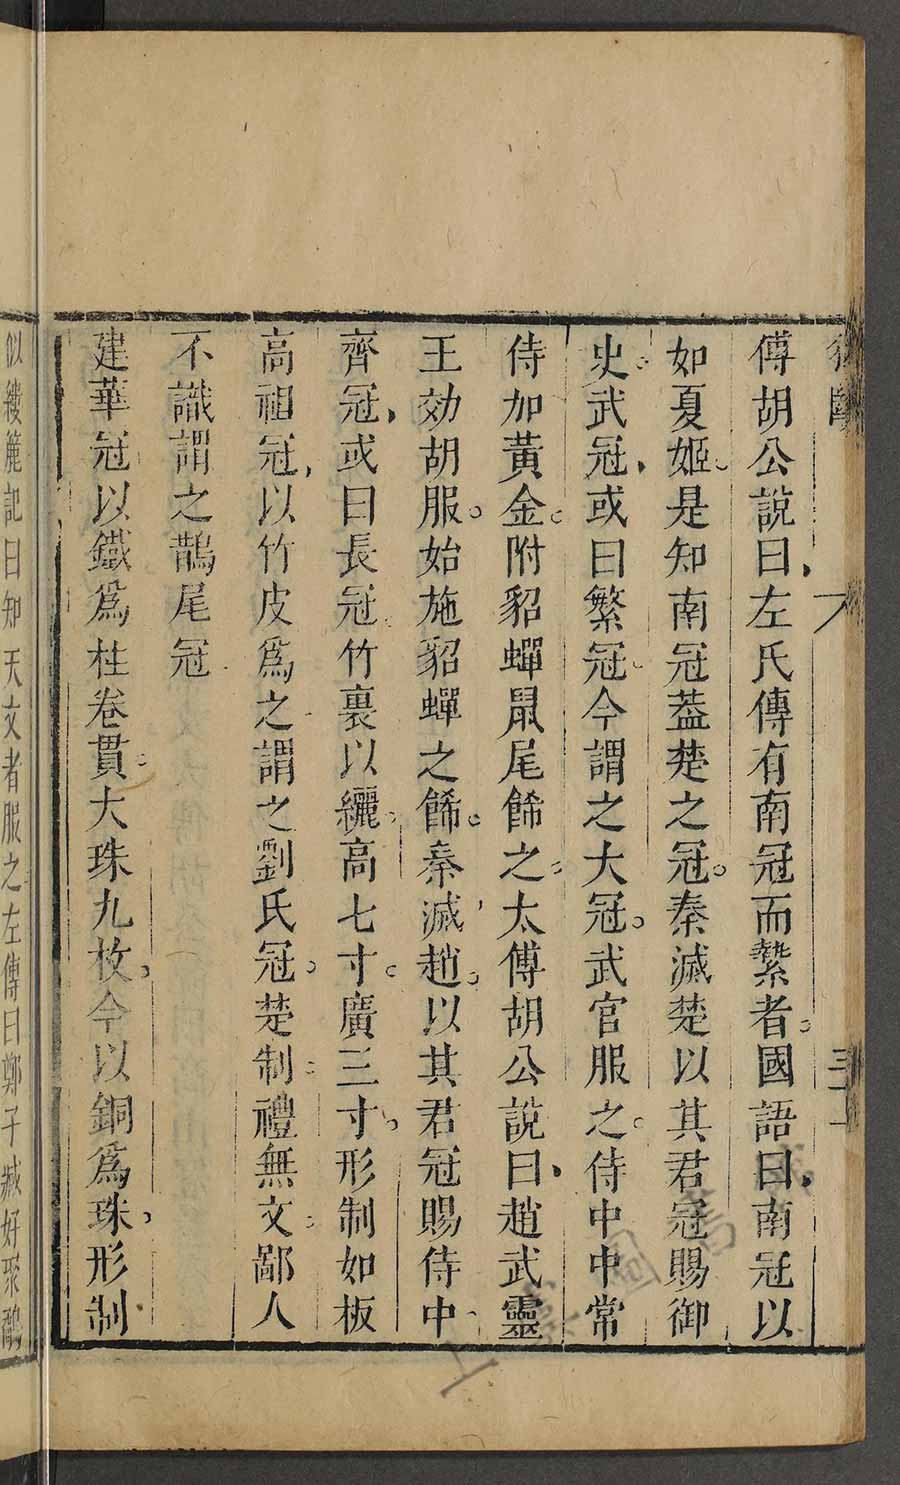 傅胡公說曰左氏傳有南冠而縶者國語曰南冠以
如夏姬是知南冠蓋楚之冠秦滅楚以其君冠賜御
史武冠或曰繁冠今謂之大冠武官服之侍中中常
侍加黃金附貂蟬鼠尾餙之太傅胡公說曰趙武靈
王効胡服始施貂蟬之餙秦滅趙以其君冠賜侍中
齊冠或曰長冠竹裏以纚高七寸廣三寸形制如板
高祖冠以竹皮爲之謂之劉氏冠楚制禮無文鄙人
不識謂之鵲尾冠
建華冠以鐵爲柱卷貫大珠九枚今以銅爲珠形制
似縷簏記曰知天文者服之左傳曰鄭子臧好聚鷸